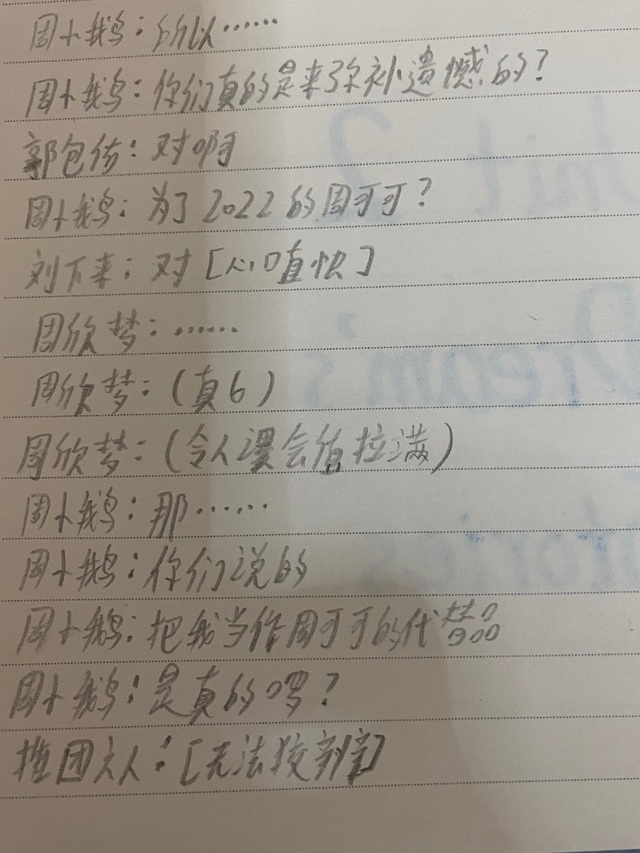 周小鹅：所以……
周小鹅：你们真的是来弥补遗憾的？
郭包佑：对啊
周小鹅：为了2022的周可可？
刘下来：对［心直口快］
周欣梦：……
周欣梦：（真6）
周欣梦：（令人误会值拉满）
周小鹅：那……
周小鹅：你们说的
周小鹅：把我当作周可可的代替品
周小鹅：是真的啰？
推团六人：［无法狡辩］
Unit 2
Dream's
Stories